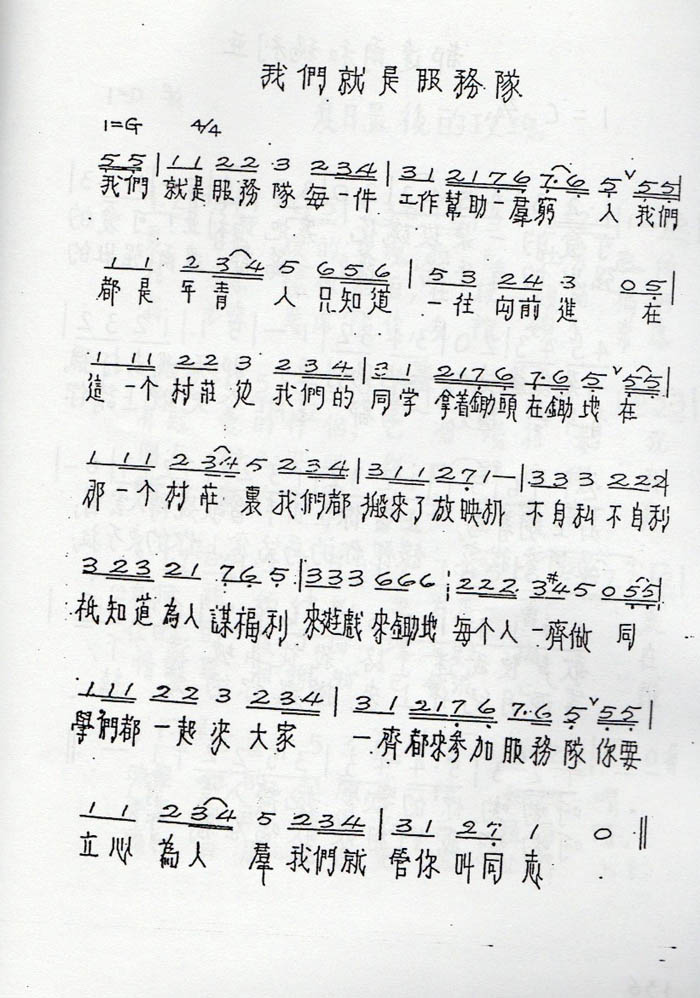 我們就是服務隊
1=G 4/4
5 5 | 1 1 2 2 3 2 3 4 | 3 1 2 1 7 6 7·6 5 ˅ 5 5 |
我們 就是服務 隊 每一件 工作幫助一羣窮 人 我們
1 1 2 3 4 5 6 5 6 | 5 3 2 4 3 0 5
都是 年青 人 只知道 一往向前進 在
1 1 1 2 2 3 2 3 4 | 3 1 2 1 7 6 7·6 5 ˅ 5 5 |
這一个村莊边 我們的 同学 拿着鋤頭在鋤地 在
1 1 1 2 3 4 5 2 3 4 | 3 1 1 2 7 1 — | 3 3 3 2 2 2 |
那一个村莊裏我們都 搬來了放映机 不自私 不自私
3 2 3 2 1 7 6 5 | 3 3 3 6 6 6 | 2 2 2 3 #4 5 0 5 5 |
祇知道為人謀福利 來遊戲 來鋤地 每个人一齊做 同
1 1 1 2 2 3 2 3 4 | 3 1 2 1 7 6 7·6 5 ˅ 5 5 |
學們都一起來 大家 一齊都來參加服務隊 你要
1 1 2 3 4 5 2 3 4 | 3 1 2 7 1 0 ‖
立心 為人 羣 我們就 管你叫同志